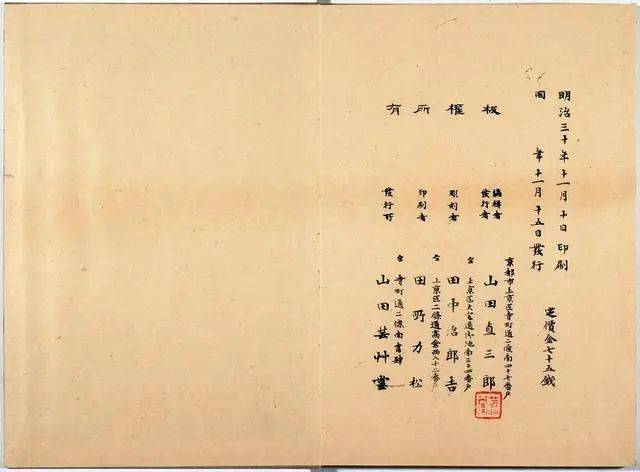 明治三十年十一月十日印刷
同年十一月十五日發行
定價金七十五錢
板權所有
編輯者
發行者
京都市上京區寺町通二條南四十七番戸
山田直三郎
彫刻者
仝上京區大宮通御池南三十四番戸
田中治郎吉
印刷者
仝上京區二條通高倉西入十二番戸
田野力松
發行所
仝寺町通二條南書肆
山田芸艸堂